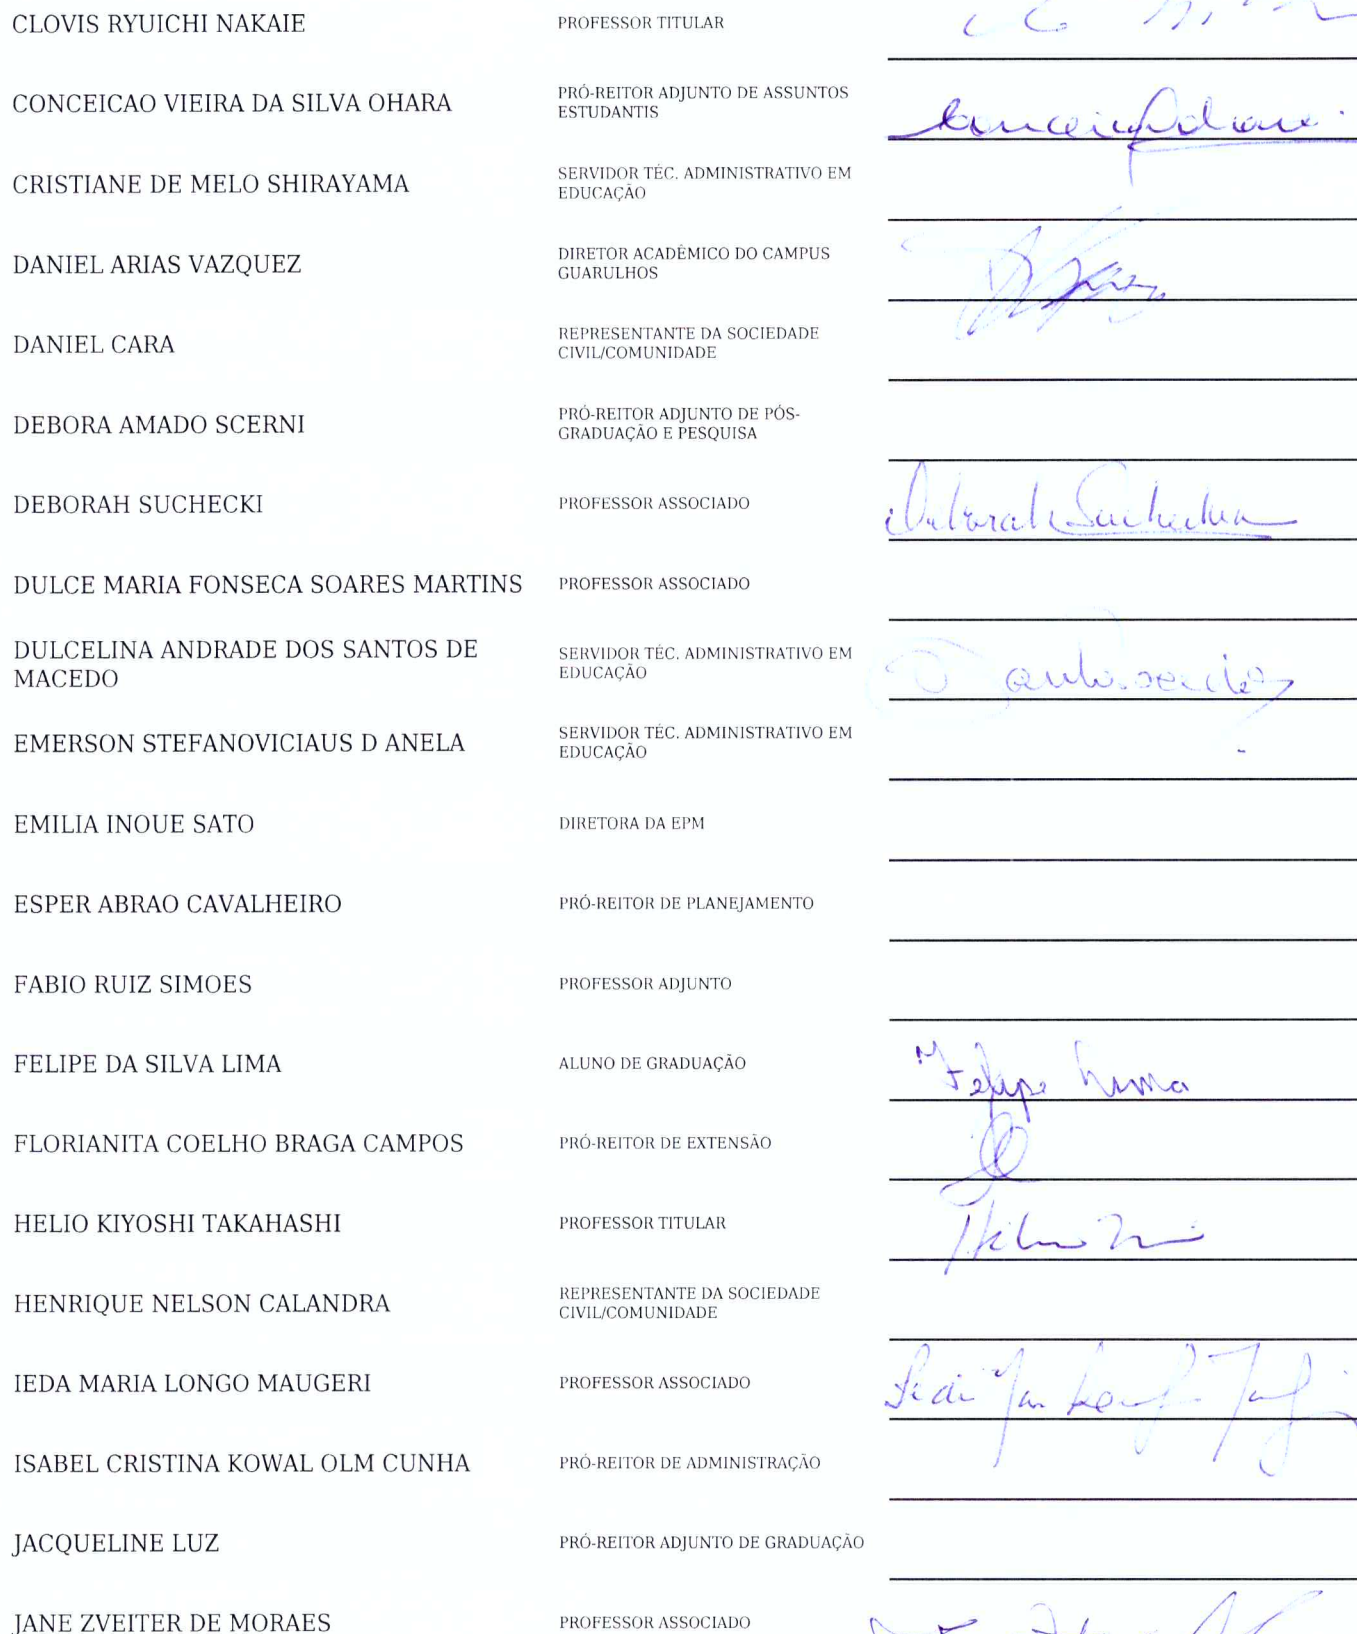 CLOVIS RYUICHI NAKAIE PROFESSOR TITULAR
CONCEICAO VIEIRA DA SILVA OHARA PRÓ-REITOR ADJUNTO DE ASSUNTOS
ESTUDANTIS
CRISTIANE DE MELO SHIRAYAMA SERVIDOR TÉC. ADMINISTRATIVO EM
EDUCAÇÃO
DANIEL ARIAS VAZQUEZ DIRETOR ACADÊMICO DO CAMPUS
GUARULHOS
DANIEL CARA REPRESENTANTE DA SOCIEDADE
CIVIL/COMUNIDADE
DEBORA AMADO SCERNI PRÓ-REITOR ADJUNTO DE PÓS-
GRADUAÇÃO E PESQUISA
DEBORAH SUCHECKI PROFESSOR ASSOCIADO Deborah Suchecki
DULCE MARIA FONSECA SOARES MARTINS PROFESSOR ASSOCIADO
DULCELINA ANDRADE DOS SANTOS DE
MACEDO SERVIDOR TÉC. ADMINISTRATIVO EM
EDUCAÇÃO
EMERSON STEFANOVICIAUS D ANELA SERVIDOR TÉC. ADMINISTRATIVO EM
EDUCAÇÃO
EMILIA INOUE SATO DIRETORA DA EPM
ESPER ABRAO CAVALHEIRO PRÓ-REITOR DE PLANEJAMENTO
FABIO RUIZ SIMOES PROFESSOR ADJUNTO
FELIPE DA SILVA LIMA ALUNO DE GRADUAÇÃO Felipe Lima
FLORIANITA COELHO BRAGA CAMPOS PRÓ-REITOR DE EXTENSÃO
HELIO KIYOSHI TAKAHASHI PROFESSOR TITULAR
HENRIQUE NELSON CALANDRA REPRESENTANTE DA SOCIEDADE
CIVIL/COMUNIDADE
IEDA MARIA LONGO MAUGERI PROFESSOR ASSOCIADO
ISABEL CRISTINA KOWAL OLM CUNHA PRÓ-REITOR DE ADMINISTRAÇÃO
JACQUELINE LUZ PRÓ-REITOR ADJUNTO DE GRADUAÇÃO
JANE ZVEITER DE MORAES PROFESSOR ASSOCIADO